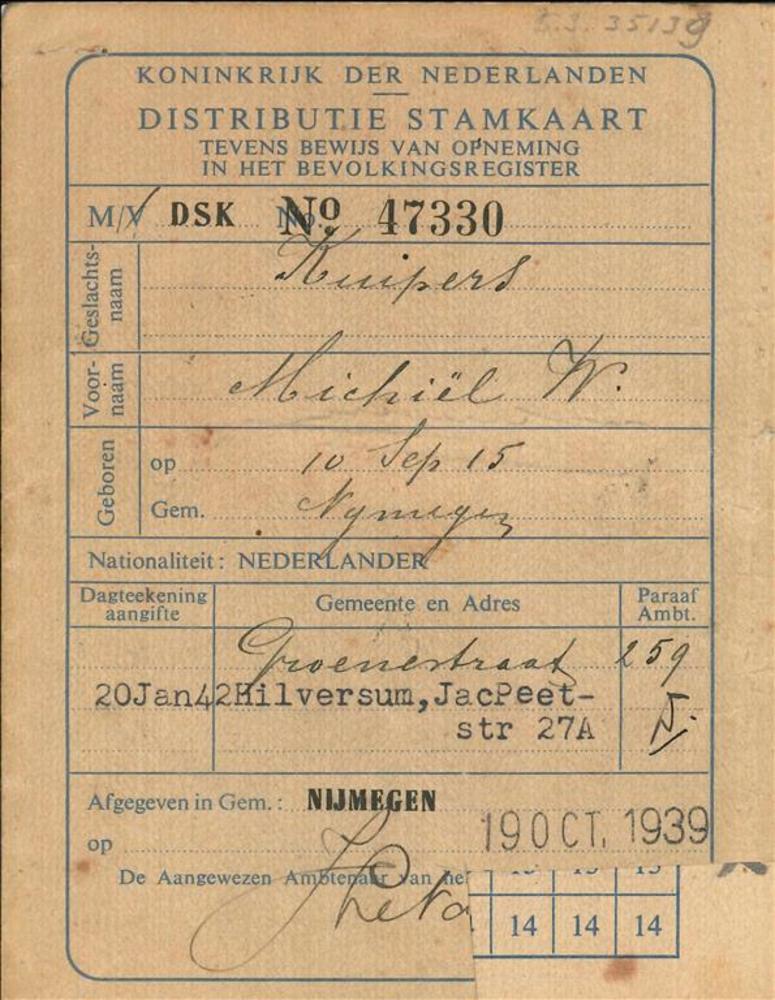 S.J. 35139
KONINKRIJK DER NEDERLANDEN
DISTRIBUTIE STAMKAART
TEVENS BEWIJS VAN OPNEMING
IN HET BEVOLKINGSREGISTER
M/V DSK No. 47330
Geslachts-
naam
Kuipers
Voor-
naam
Michiël W.
Geboren
op 10 Sep 15
Gem. Nymegen
Nationaliteit: NEDERLANDER
Dagteekening
aangifte
Gemeente en Adres
Paraaf
Ambt.
Groenestraat 259
20Jan42 Hilversum, JacPeet-
str 27A
Afgegeven in Gem.: NIJMEGEN
op 19 OCT. 1939
De Aangewezen Ambtenaar van he
14 14 14